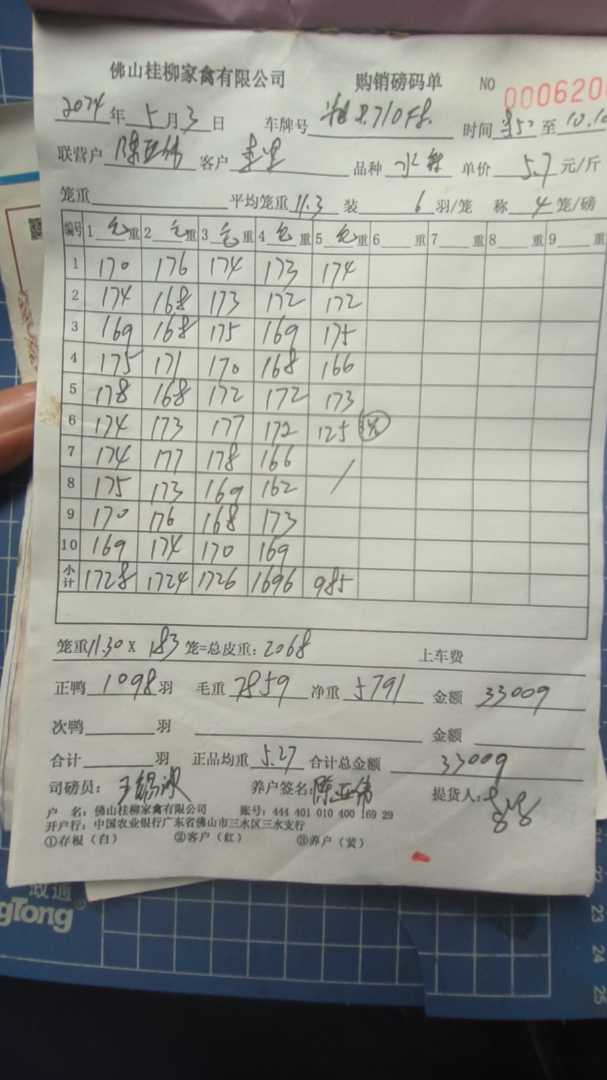 佛山桂柳家禽有限公司 购销磅码单 NO 000620
2024年5月3日 车牌号 8710F8 时间 至 10.10
联营户 陈亚伟 客户 品种 水鸭 单价 5.7 元/斤
笼重 平均笼重 11.3 装 6 羽/笼 称 4 笼/磅
编号 1 毛重 2 毛重 3 毛重 4 毛重 5 毛重 6 重 7 重 8 重 9 重
1 170 176 174 173 174
2 174 168 173 172 172
3 169 168 175 169 175
4 175 171 170 168 166
5 178 168 172 172 173
6 174 173 177 172 125
7 174 177 178 166 /
8 175 173 169 162
9 170 176 168 173
10 169 174 170 169
小计 1728 1724 1726 1696 985
笼重11.30 x 183 笼=总皮重:2068 上车费
正鸭 1098 羽 毛重 7859 净重 5791 金额 33009
次鸭 羽 金额
合计 羽 正品均重 5.27 合计总金额 33009
司磅员: 养户签名: 陈亚伟 提货人:
户 名: 佛山桂柳家禽有限公司 账号: 444 401 010 400 169 29
开户行: 中国农业银行广东省佛山市三水区三水支行
①存根(白) ②客户(红) ③养户(黄)
ngTong
22
23
24
25